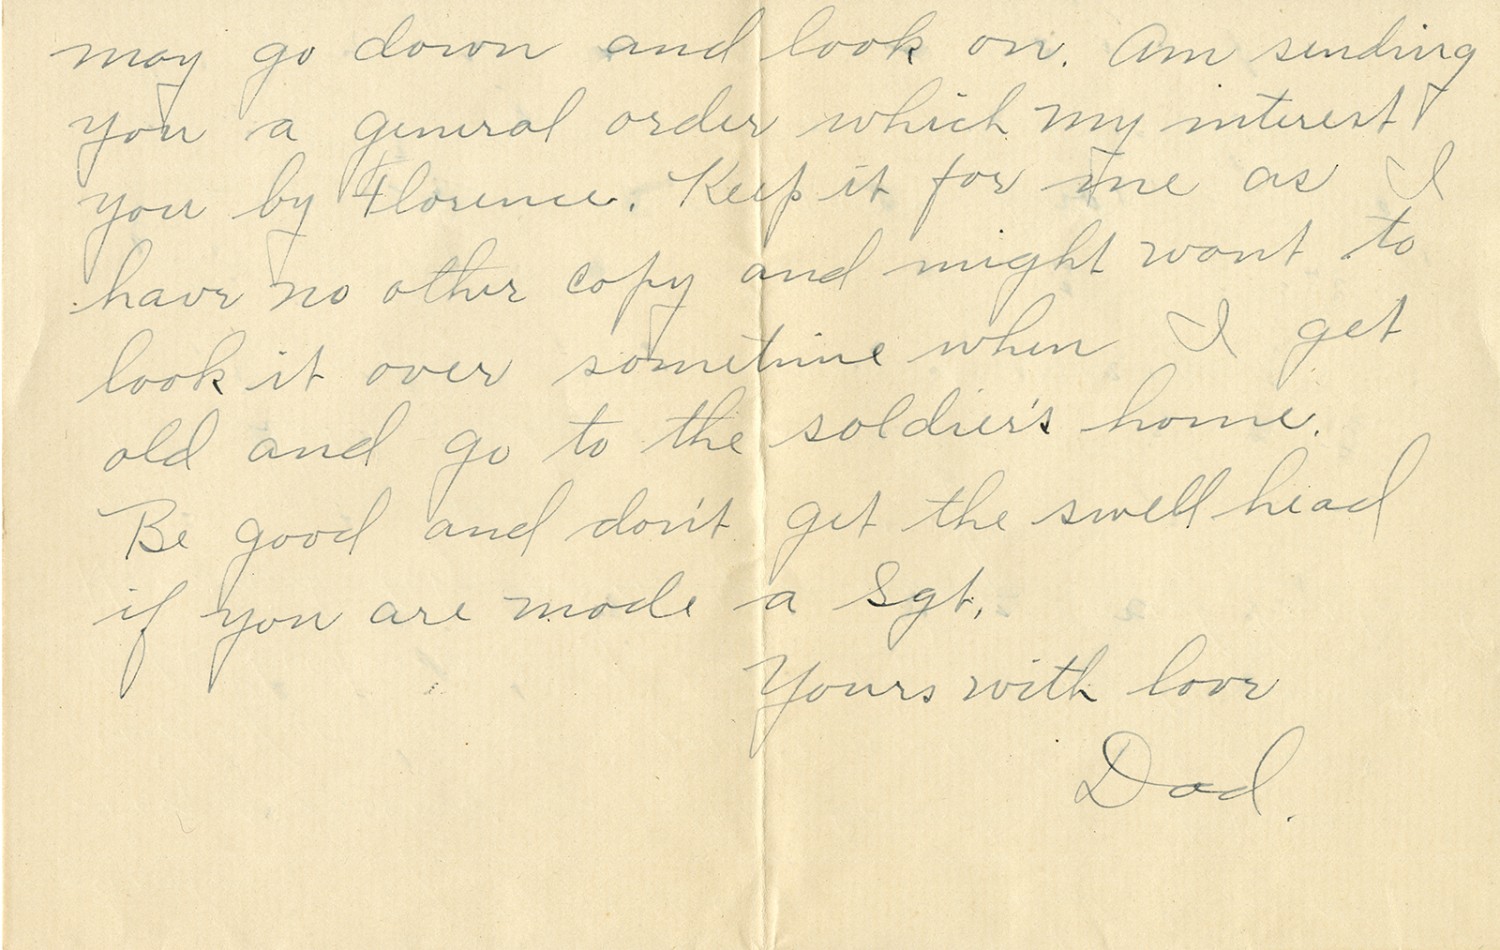 may go down and look on. Am sending
you a general order which my interest
you by Florence. Keep it for me as I
have no other copy and might want to
look it over sometime when I get
old and go to the soldier's home.
Be good and don't get the swell head
if you are made a Sgt.
Yours with love
Dad.